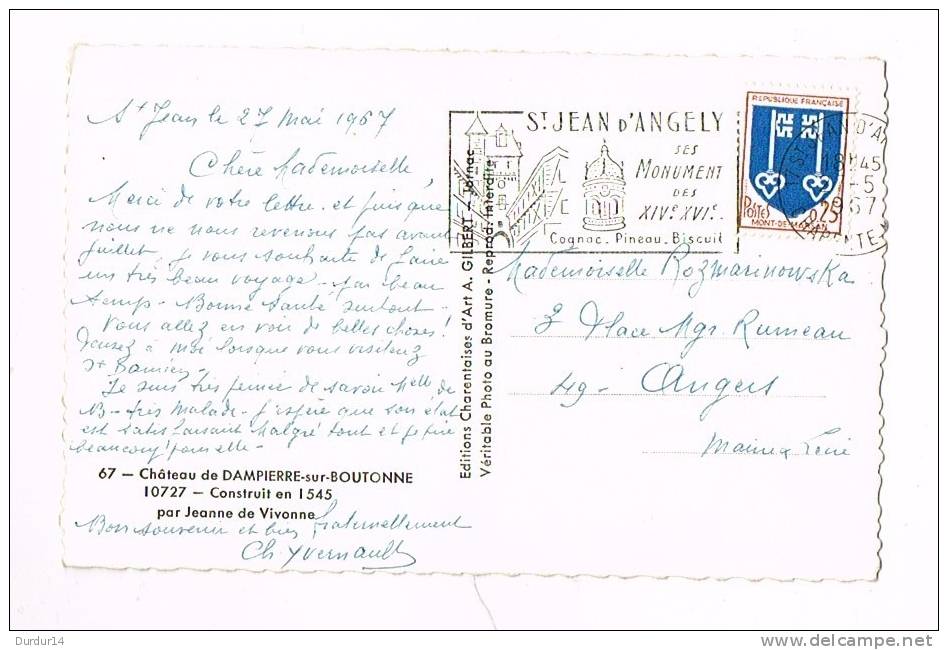 St Jean le 27 Mai 1967
Chère Mademoiselle,
Merci de votre lettre. et puisque
nous ne nous revenons pas avant
juillet, je vous souhaite de faire
un très beau voyage - par beau
temps - Bonne Santé surtout -
Vous allez en voir de belles choses!
Pensez à moi lorsque vous visiterez
St Damien -
Je suis très peinée de savoir Melle de
B - très malade - j'espère que son état
est satisfaisant malgré tout et je prie
beaucoup pour elle -
67 — Château de DAMPIERRE-sur-BOUTONNE
10727 — Construit en 1545
par Jeanne de Vivonne
Bon souvenir et bien fraternellement
Ch. Yvernault
Editions Charentaises d'Art A. GILBERT — Jarnac
Véritable Photo au Bromure - Reprod. Interdite
ST JEAN D'ANGELY
SES
MONUMENT
DES
XIVe XVIe.
Cognac. Pineau. Biscuit
REPUBLIQUE FRANÇAISE
Postes 0,25
MONT-DE-MARSAN
17 ST JEAN D'A
18H45
-5
1967
Mademoiselle Rozmarinowska
3 Place Mgr. Rumeau
49 - Angers
Maine & Loire
Durdur14
www.delcampe.net